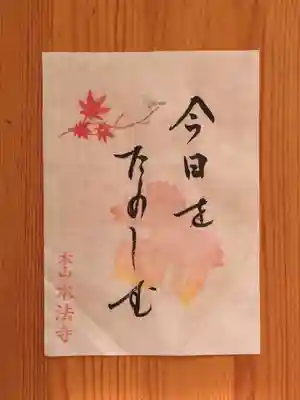 今日を
たのしむ
本山 本法寺